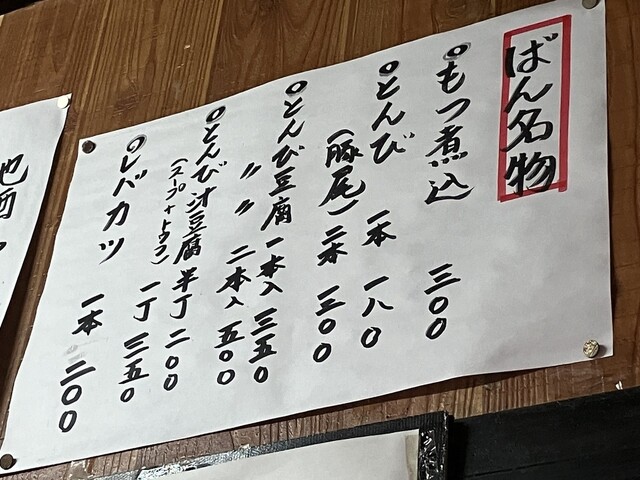 ばん名物
○もつ煮込 三〇〇
○とんび 一本 一八〇
(豚尾) 二本 三〇〇
○とんび豆腐 一本入 三五〇
〃 〃 二本入 五〇〇
○とんび汁豆腐 半丁 二〇〇
(スープ+トウフ) 一丁 三五〇
○レバカツ 一本 二〇〇
地酒